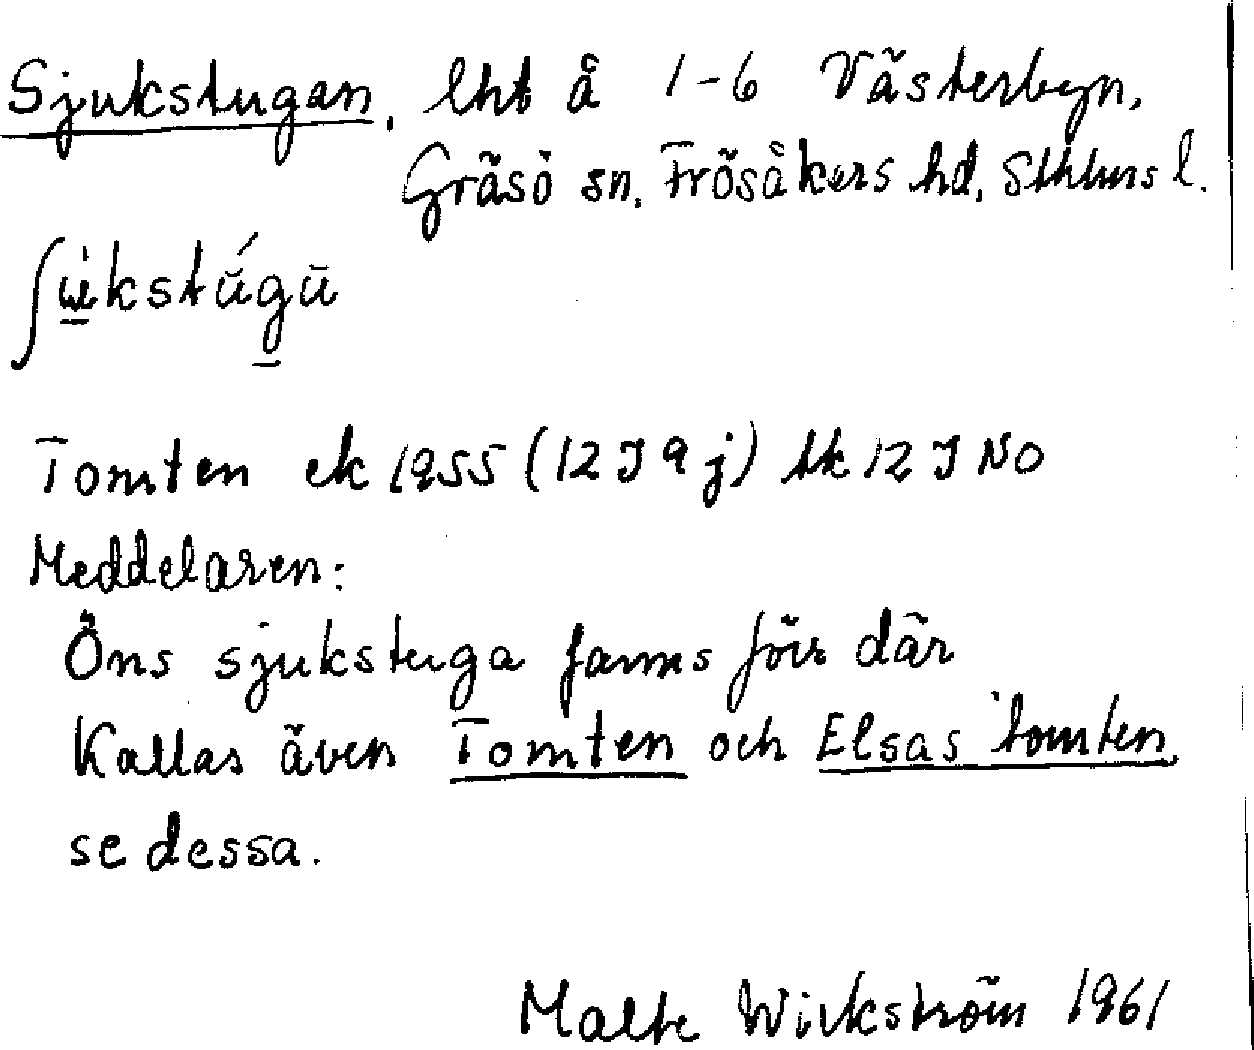 Sjukstugan, lht å 1-6 Västerbyn,
Gräsö sn, Frösåkers hd, Sthlms l.
Tomten ek 1955 (12 I 9 j) tk 12 I NO
Meddelaren:
Öns sjukstuga fanns förr där
Kallas även Tomten och Elsas tomten,
se dessa.
Malte Wickström 1961